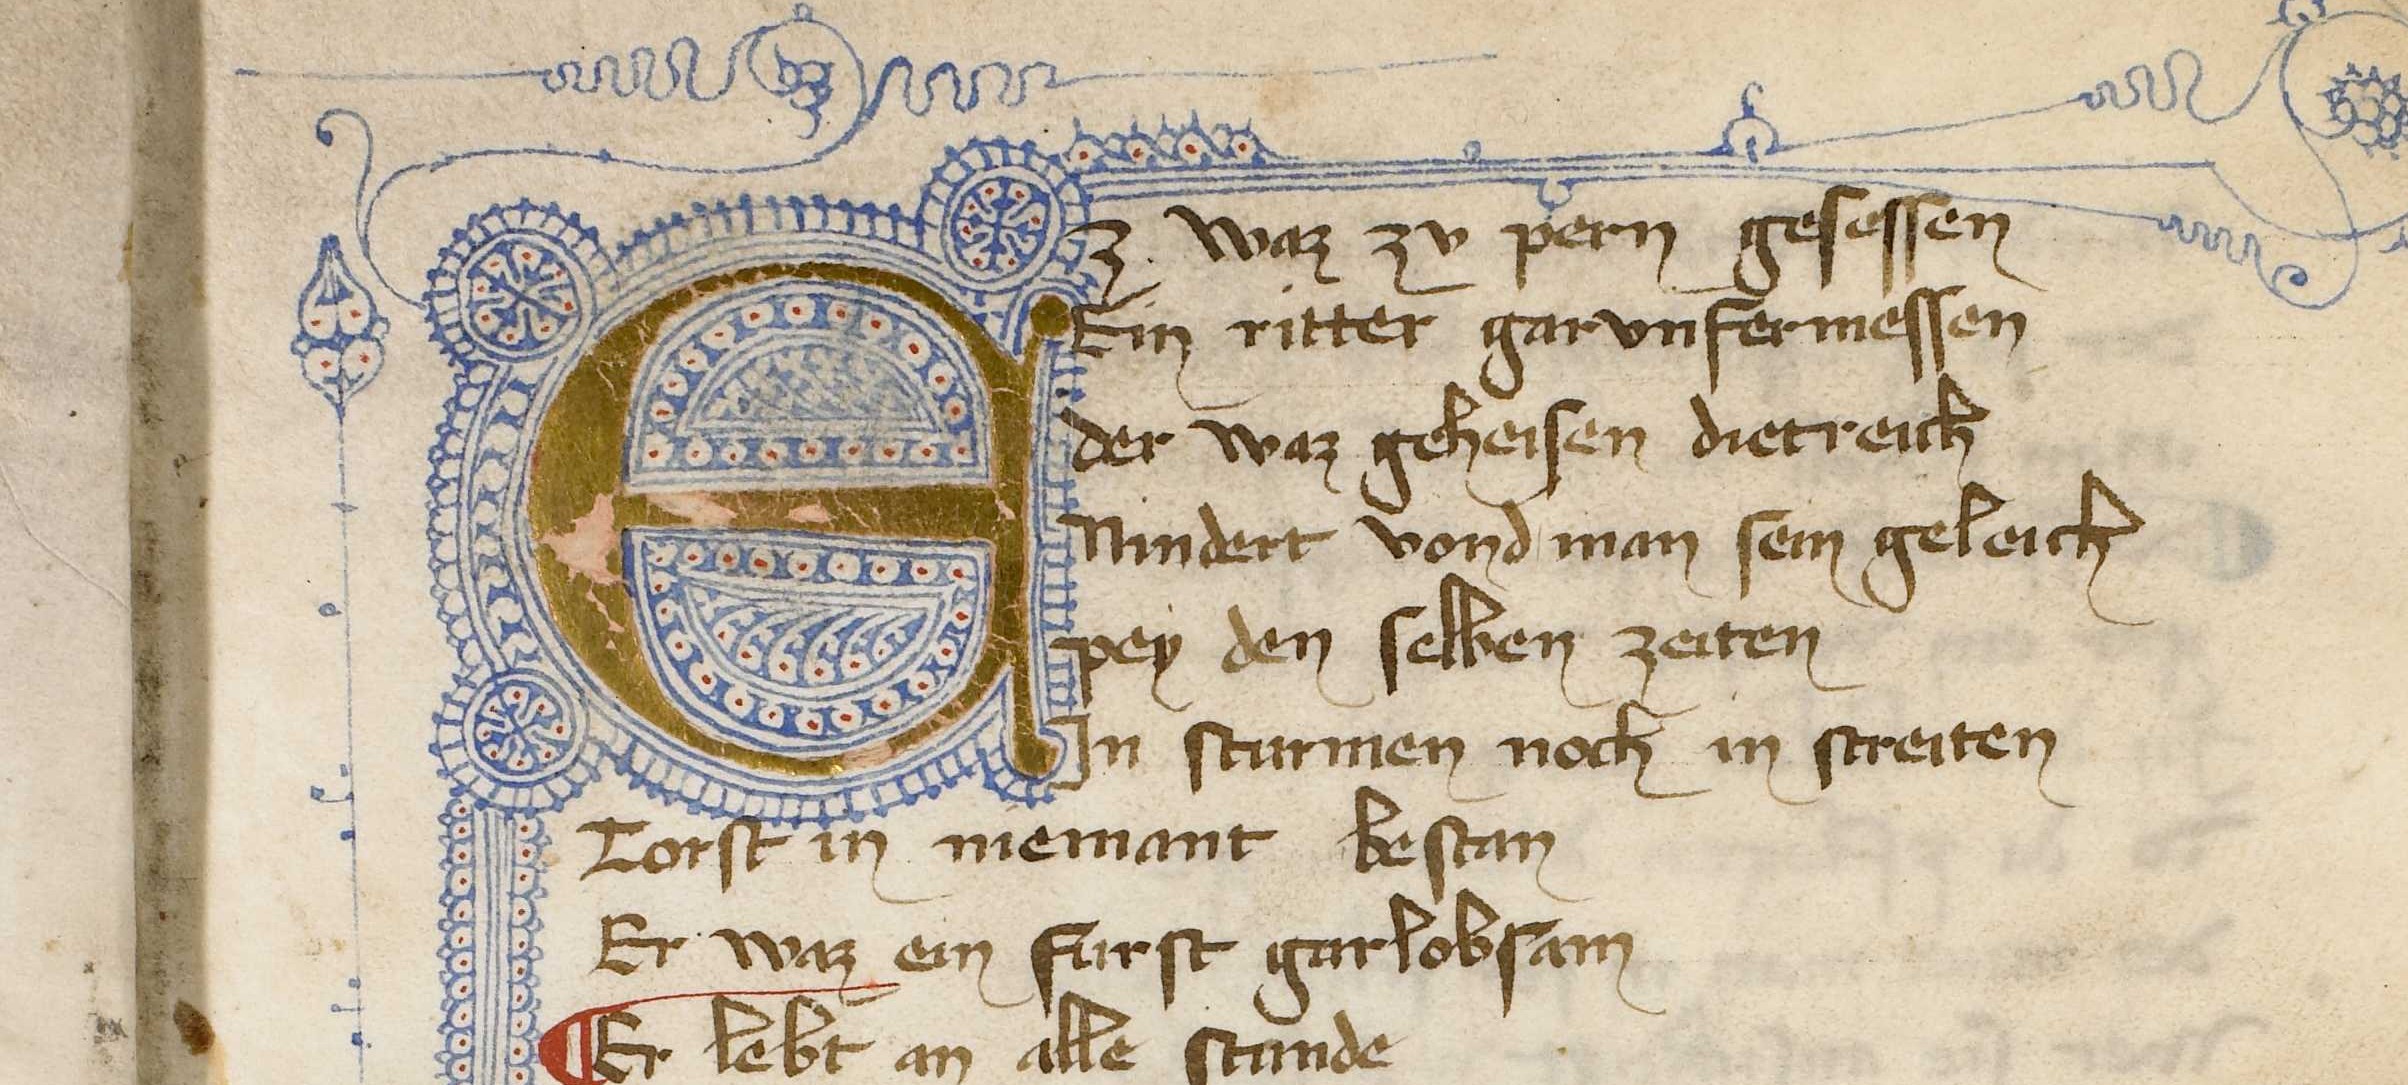 Ez waz zv pern gesessen
Ein ritter garvnfermessen
der waz geheisen dietreich
Nindert vond man sein geleich
pey den selben zeiten
In sturmen noch in streiten
Torst in niemant bestan
Er waz ein furst garlobsam
Er lebt an alle stunde